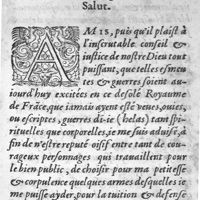 Salut.
AMIS, puis qu'il plaist à
l'inscrutable conseil &
iustice de nostre Dieu tout
puissant, que telles esmeu
tes & guerres soient au-
iourd'huy excitées en ce desolé Royaume
de Frāce, que iamais ayent esté veues, ouies,
ou escriptes, guerres di-ie (helas) tant spi-
rituelles que corporelles, ie me suis aduisé, à
fin de n'estre reputé oisif entre tant de cou-
rageux personnages qui trauaillent pour
le bien public, de choisir pour ma petitesse
& corpulence quelques armes desquelles ie
me puisse ayder, pour la tuition & defense